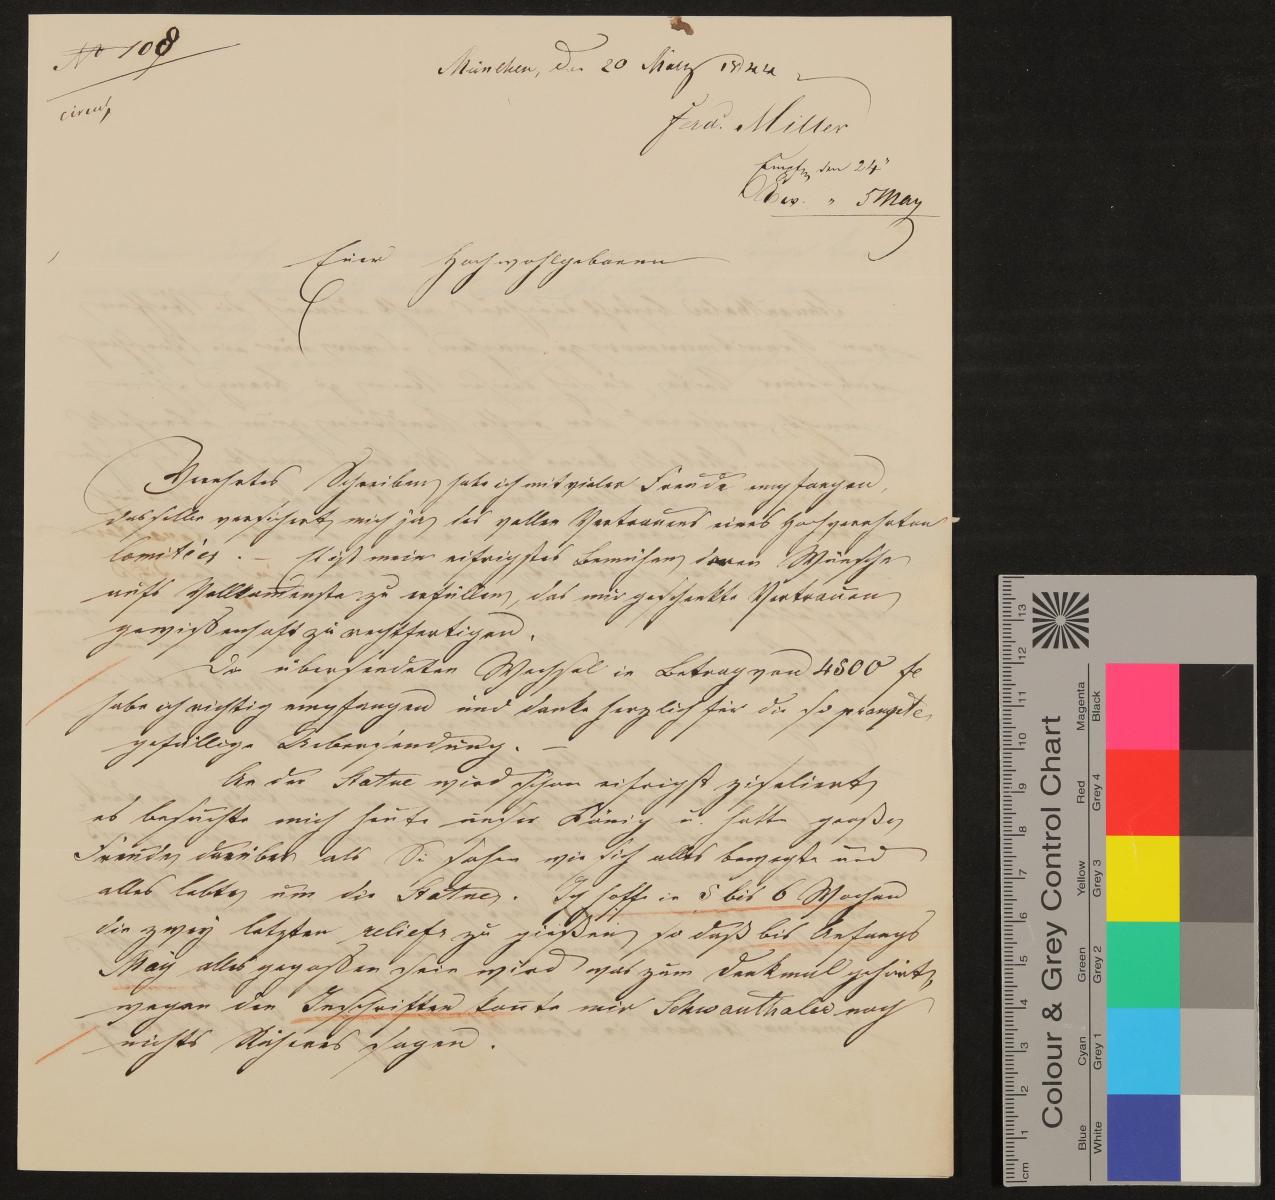 No 108
circul.
München, den 20 März 1844
Ferd. Miller
Empfn den 24"
Erw. " 5 May
Euer Hochwohlgeboren
Verehrtes Schreiben habe ich mit vieler Freude empfangen,
dasselbe versichert mich ja des vollen Vertrauens eines hochverehrten
Comitées. – Es ist mein eifrigstes Bemühen deren Wünsche
aufs Vollkomenste zu erfüllen, das mir geschenkte Vertrauen
gewissenhaft zu rechtfertigen.
Da übersendeten Wechsel in Betrag von 4500 fl
habe ich richtig empfangen und danke herzlich für die so prompte
gefällige Uebersendung. –
An der Statue wird schon eifrigst ziseliert
es besuchte mich heute unser König u. hatte große
Freude darüber als Sie sahen wie sich alles bewegte und
alles lebte um die Statue. Ich hoffe in 5 bis 6 Wochen
die zwey letzten reliefs zu gießen so daß bis Anfangs
May alles gegossen sein wird was zum Denkmal gehört,
wegen den Inschriften konte mir Schwanthaler noch
nichts Näheres sagen.
Colour & Grey Control Chart
Magenta
Red
Yellow
Green
Cyan
Blue
Black
Grey 4
Grey 3
Grey 2
Grey 1
White
cm 1 2 3 4 5 6 7 8 9 10 11 12 13